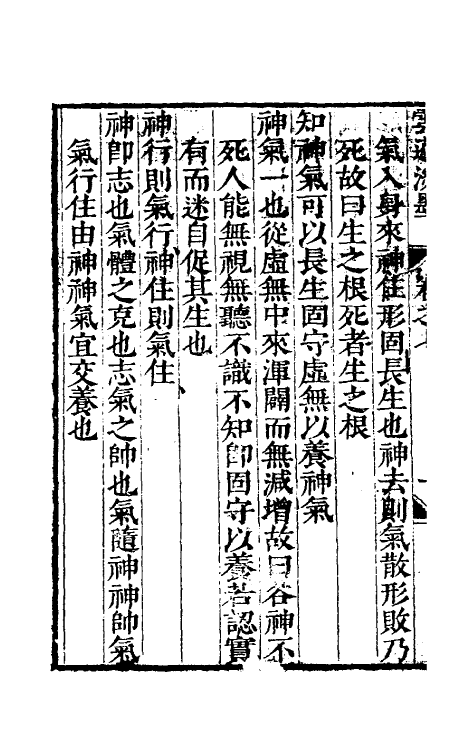 氣入身來神住形固長生也神去則氣散形敗乃
死故曰生之根死者生之根
知神氣可以長生固守虛無以養神氣
神氣一也從虛無中來渾闢而無減增故曰谷神不
死人能無視無聽不識不知卽固守以養若認實
有而迷自促其生也
神行則氣行神住則氣住
神卽志也氣體之充也志氣之帥也氣隨神神帥氣
氣行住由神神氣宜交養也